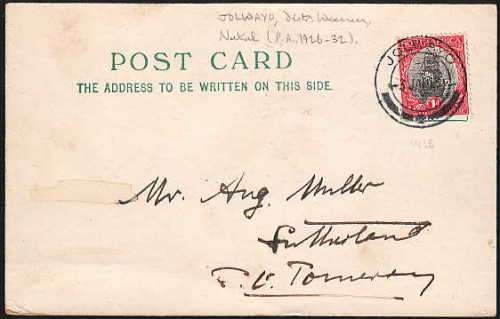 JOLWAYO, Dist. Weenen,
Natal (P.A. 1926-32).
POST CARD
THE ADDRESS TO BE WRITTEN ON THIS SIDE.
JOLWAYO
Mr. Aug. Muller
Sutherland
P. O. Tomeray